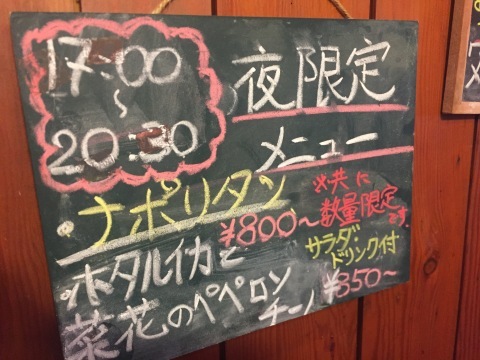 17:00
～
20:30
夜限定
メニュー
・ナポリタン
¥800～
※共に
数量限定
です。
・ホタルイカと
菜花のペペロン
チーノ
サラダ・
ドリンク付
¥850～